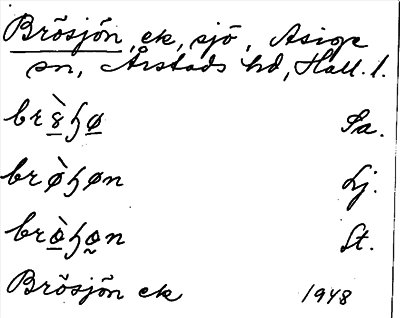 Brösjön, ek, sjö, Asige
sn, Årstads hd, Hall. l.
Sa.
brø̀ɧøn Lj.
St.
Brösjön ek 1948